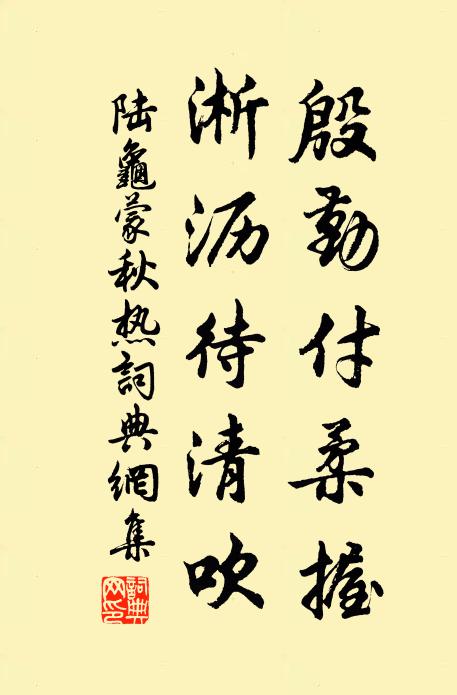 殷勤付柔握
淅沥待清吹
陆龜蒙秋热詞典網集
詞典网印